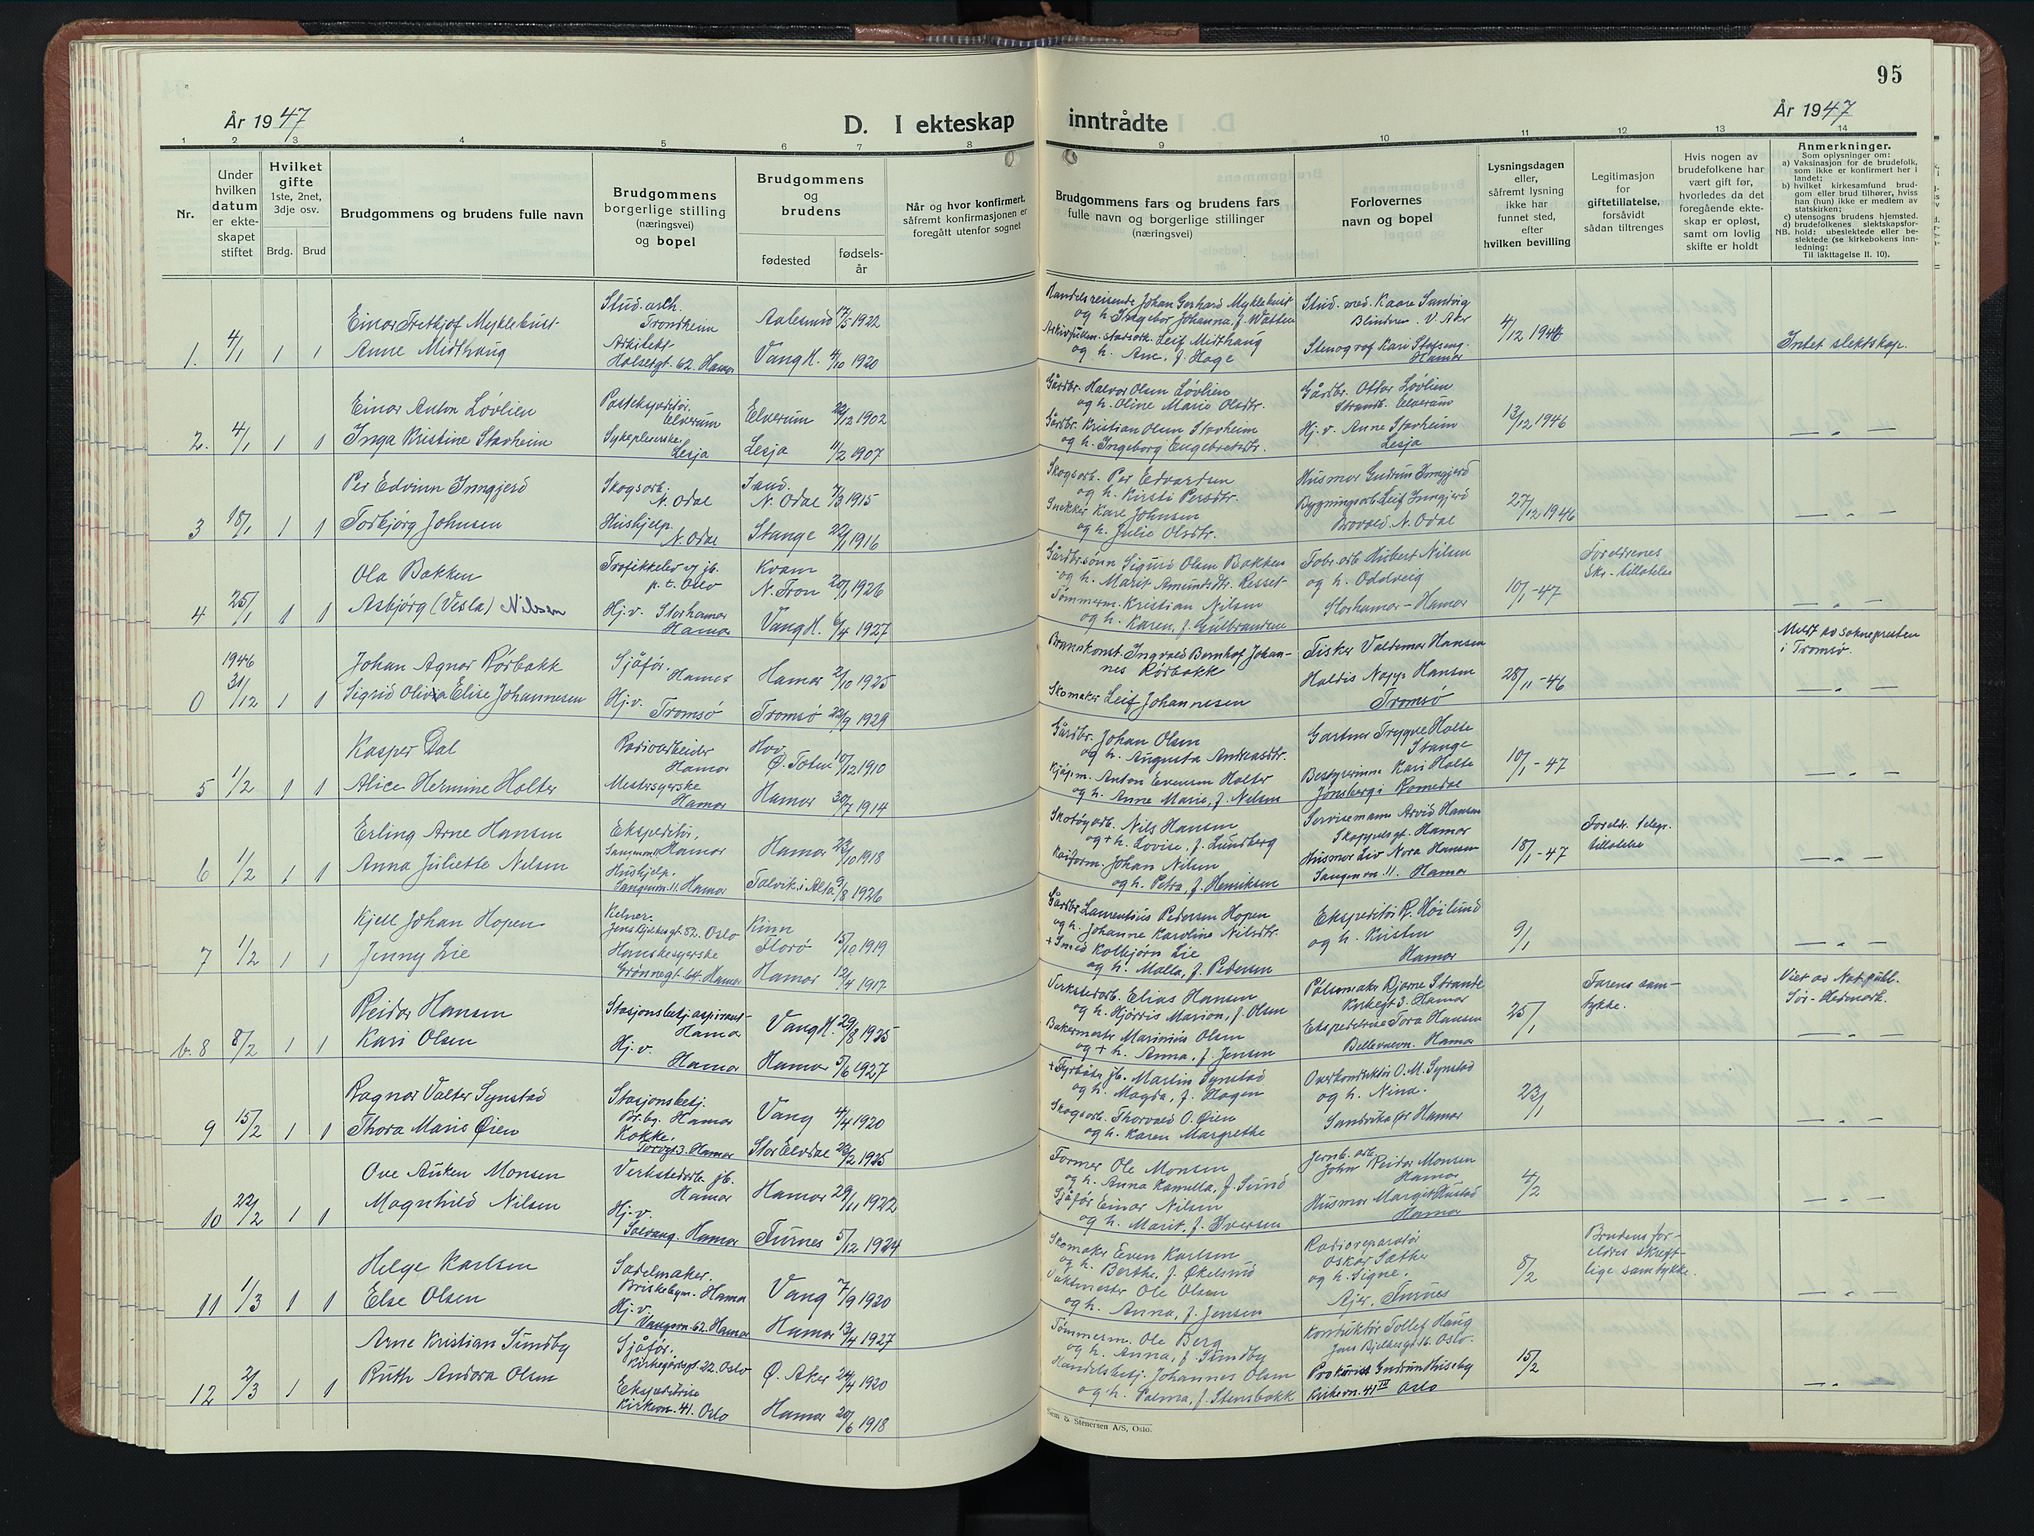 95
År 1947
D. I ekteskap inntrådte
År 1947
1 2 3 4 5 6 7 8 9 10 11 12 13 14
Nr.
Under hvilken datum er ekteskapet stiftet
Hvilket gifte
1ste, 2net, 3dje osv.
Brdg. Brud
Brudgommens og brudens fulle navn
Brudgommens borgerlige stilling (næringsvei) og bopel
Brudgommens og brudens
fødested
fødselsår
Når og hvor konfirmert, såfremt konfirmasjonen er foregått utenfor sognet
Brudgommens fars og brudens fars fulle navn og borgerlige stillinger (næringsvei)
Forlovernes navn og bopel
Lysningsdagen eller, såfremt lysning ikke har funnet sted, efter hvilken bevilling
Legitimasjon for giftetillatelse, forsåvidt sådan tiltrenges
Hvis nogen av brudefolkene har vært gift før, hvorledes da det foregående ekteskap er opløst, samt om lovlig skifte er holdt
Anmerkninger.
Som oplysninger om:
a) Vaksinasjon for de brudefolk, som ikke er konfirmert her i landet;
b) hvilket kirkesamfund brudgom eller brud tilhører, hvis han (hun) ikke er medlem av statskirken;
c) utensogns brudens hjemsted.
d) brudefolkenes slektskapsforhold: ubeslektede eller beslektede (se kirkebokens innledning:
NB.
Til iakttagelse II. 10).
1. 4/1 1 1
Einar Frethjof Myklebust
Anne Midthaug
Stud. arch. Trondheim
Arkitekt
Holsetgt. 62. Hamar
Aalesund 17/5 1922
Vang H. 4/10 1920
Handelsreisende Johan Gerhard Myklebust
og h. Ingebor Johanna, f. Watten
Leif Midthaug
og h. Ane, f. Hage
Stud. med. Kaare Sandvig
Blindern. V. Aker
Stenograf Kari
Hamar
4/12 1946
Intet slektskap.
2. 4/1 1 1
Einar Anton Løvlien
Inga Kristine Stavheim
Postekspeditør, Elverum
Sykepleierske Lesja
Elverum 22/12 1902
Lesja 11/2 1907
Gårdbr. Halvor Olsen Løvlien
og h. Oline Marie Olsdtr.
Gårdbr. Kristian Olsen Stavheim
og h. Ingeborg Engebretsdtr.
Gårdbr. Ottar Løvlien
Strandb. Elverum
Hj. v. Anne Stavheim
Lesja
13/12 1946
— „ —
3 18/1 1 1
Per Edvinn Inngjerd
Torbjørg Johnsen
Skogsarb. N. Odal
Hushjelp. N. Odal
Sand. N. Odal 7/3 1915
Stange 22/1 1916
Skogsarb. Per Edvardsen
og h. Kirsti Persdtr.
Snekker Kare Johnsen
og h. Julie Olsdtr.
Husmor Gudrun Inngjerd
Bygningsarb. Leif Inngjerd
Brovoll N. Odal
27/12 1946
— „ —
4 25/1 1 1
Ola Bakken
Asbjørg (Vesla) Nilsen
Trafikkelev v/ jb. p. t. Oslo
Hj. v. Storhamar Hamar
Kvam N. Fron 20/1 1926
Vang H. 6/4 1927
Gårdbr.sønn Sigurd Olsen Bakken
og h. Marit Amundsdtr. Resset
Tømmerm. Kristian Nilsen
og h. Karen, f. Gulbrandsen
Fabr. arb. Hubert Nilsen
og h. Oddveig
Storhamar - Hamar
10/1 - 47
Foreldrenes skr. tillatelse
— „ —
0 1946 31/12 1 1
Johan Agnar Rørbakk
Sigrid Olivia Elise Johannesen
Sjåfør. Hamar
Hj. v. Tromsø
Hamar 2/10 1925
Tromsø 22/9 1929
Brannkonst. Ingvald Bernhof Johannes Rørbakk
Skomaker Leif Johannesen
Fisker Valdemar Hansen
Haldis Napp Hansen
Tromsø
28/11 - 46
Meldt av soknepresten i Tromsø.
— „ —
5 1/2 1 1
Kasper Dal
Alice Hermine Holter
Radioarbeider Hamar
Mestersyerske Hamar
Hov Ø. Toten 10/12 1910
Hamar 30/7 1914
Gårdbr. Johan Olsen
og h. Augusta Andreasdtr.
Kjøpm. Anton Evensen Holter
og h. Anne Marie, f. Nilsen
Gartner Trygve Holte
Stange
Bestyrerinne Kari Holte
Jønsberg i Romedal
10/1 - 47
— „ —
6 1/2 1 1
Erling Arne Hansen
Anna Juliette Nilsen
Ekspeditør, Sangenvn. 11 Hamar
Hushjelp. Sangenvn. 11. Hamar
Hamar 23/10 1918
Talvik i Alta 9/8 1926
Skotøyarb. Nils Hansen
og + h. Lovise, f. Lundberg
Kaiform. Johan Nilsen
og h. Petra, f. Henriksen
Servisemann Arvid Hansen
Skappelsgt. Hamar
Husmor Liv Nora Hansen
Sangenvn. 11. Hamar
18/1 - 47
Foreldr. telegr. tillatelse
— „ —
7 1/2 1 1
Kjell Johan Hopen
Jenny Lie
Kelner. Jens Bjelkesgt. 52. Oslo
Hanskesyerske Grønnegt. 64. Hamar
Kinn Florø 15/10 1919
Hamar 12/4 1917
Gårdbr. Laurentius Pedersen Hopen
og h. Johanne Karoline Nilsdtr.
+ Smed Kolbjørn Lie
og h. Malla, f. Pedersen
Ekspeditør R. Høilund
og h. Kirsten
Hamar
9/1
— „ —
b. 8 8/2 1 1
Reidar Hansen
Kari Olsen
Stasjonsbetj.aspirant Hamar
Hj. v. Hamar
Vang H. 29/8 1925
Hamar 5/6 1927
Verkstedarb. Elias Hansen
og h. Hjørris Marion, f. Olsen
Bakermester Marinius Olsen
og + h. Anna, f. Jensen
Pølsemaker Bjarne Strande
Kirkegt. 3. Hamar
Ekspeditrise Tora Hansen
Bellevuevn. Hamar
25/1
Farens samtykke.
Viet av Not. publ. Sør-Hedmark.
— „ —
9 15/2 1 1
Ragnar Valter Synstad
Thora Maris Øien
Stasjonsbetj. Br.by. Hamar
Kokke. Torvgt 3. Hamar
Vang 4/4 1920
Stor Elvdal 22/2 1925
+ Fyrbøter jb. Martin Synstad
og h. Magda, f. Hagen
Skogsarb. Thorvald O. Øien
og h. Karen Margrethe
Overkonduktør O. M. Synstad
og h. Nina.
Sandvika pr. Hamar
23/1
10 22/2 1 1
Ove Auken Monsen
Magnhild Nilsen
Verkstedarb. jb. Hamar
Hj. v. Solvang. Hamar
Hamar 29/11 1922
Furnes 5/12 1924
Former Ole Monsen
og h. Anna Kamella, f. Sund
Sjåfør Einar Nilsen
og h. Marit, f. Iversen
Jernb. arb. John Reidar Monsen
Hamar
Husmor Margit Hustad
Hamar
4/2
— „ —
11 1/3 1 1
Helge Karlsen
Else Olsen
Sadelmaker. Briskebyvn. Hamar
Hj. v. Vangsvn. 62. Hamar
Vang 7/9 1920
Hamar 13/4 1927
Skomaker Even Karlsen
og h. Berthe, f. Økelsrud
Vaktmester Ole Olsen
og h. Anna, f. Jensen
Radioreparatør Oskar Sæther
og h. Signe.
Ajer, Furnes
8/2
Brudens foreldres skriftlige samtykke.
— „ —
12 2/3 1 1
Arne Kristian Sundby
Ruth Andora Olsen
Sjåfør. Kirkegårdsgt. 22. Oslo
Ekspeditrise Kirkevn. 41. Oslo
Ø. Aker 24/4 1920
Hamar 20/6 1918
Tømmerm. Ole Berg
og h. Anna, f. Sundby
Handelsbetj. Johannes Olsen
og h. Palma, f. Stensbakk
Konduktør Tollef Haug
Jens Bjelkesgt 16. Oslo.
Prokurist Gudrund Huseby
Kirkevn. 41 III Oslo
15/2
— „ —
Sem & Stenersen A/S, Oslo.